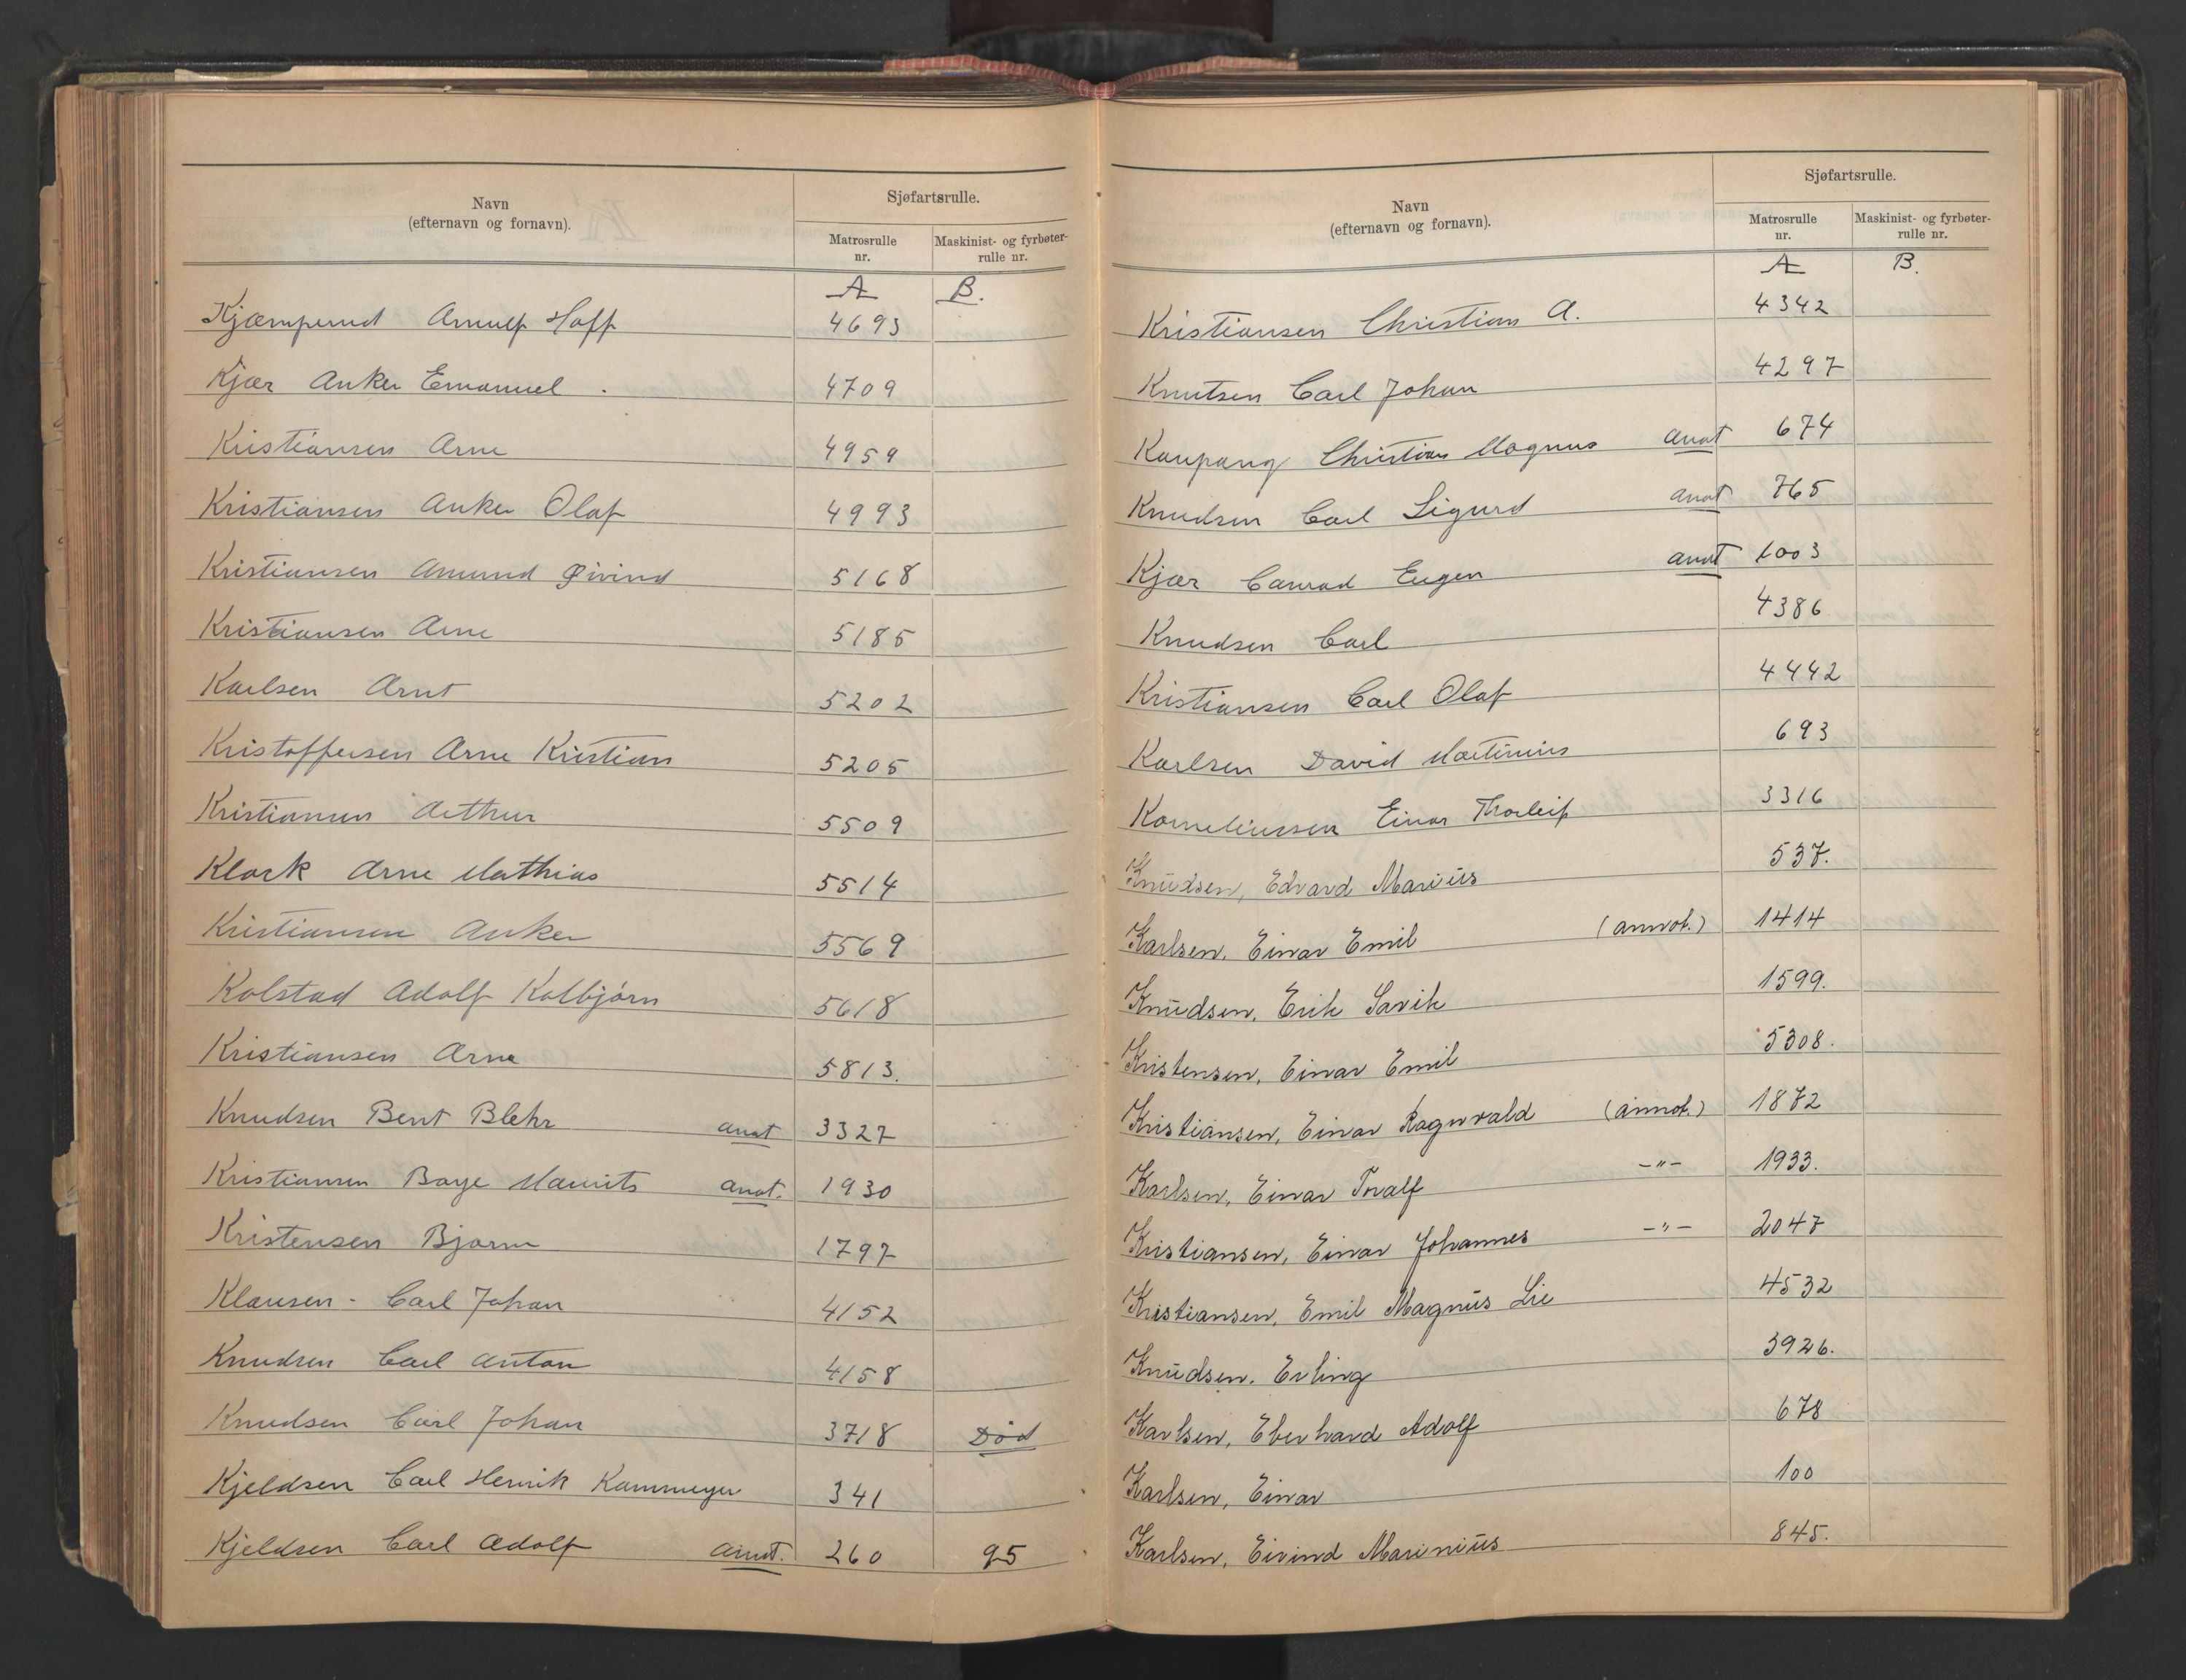 Navn
(efternavn og fornavn).
Sjøfartsrulle.
Matrosrulle
nr.
Maskinist- og fyrbøter-
rulle nr.
A B.
Kjæmperud Arnulf Hoff 4693
Kjær Anker Emanuel . 4709
Kristiansen Arne 4959
Kristiansen Anker Olaf 4993
Kristiansen Amund Øivind 5168
Kristiansen Arne 5185
Karlsen Arnt 5202
Kristoffersen Arne Kristian 5205
Kristiansen Arthur 5509
Klark Arne Mathias 5514
Kristiansen Anker 5569
Kolstad Adolf Kolbjørn 5618
Kristiansen Arne 5813.
Knudsen Bent Blehr anot 3327
Kristiansen Baye Maurits anot. 1930
Kristensen Bjarne 1797
Klausen - Carl Johan 4152
Knudsen Carl Anton 4158
Knudsen Carl Johan 3718 Død
Kjeldsen Carl Henrik Kammeyer 341
Kjeldsen Carl Adolf annt. 260 95
Navn
(efternavn og fornavn).
Sjøfartsrulle.
Matrosrulle
nr.
Maskinist- og fyrbøter-
rulle nr.
A B.
Kristiansen Christian A. 4342
Knutsen Carl Johan 4297
Kaupang Christian Magnus anot 674
Knudsen Carl Sigurd anot 765
Kjær Conrad Eugen anot 1003
Knudsen Carl 4386
Kristiansen Carl Olaf 4442
Karlsen David Martinius 693
Korneliussen Einar Thorleif 3316
Knudsen, Edvard Marius 537.
Karlsen, Einar Emil (annot.) 1414
Knudsen, Erik Savik 1599.
Kristensen, Einar Emil 5308.
Kristiansen, Einar Ragnvald (annot.) 1872
Karlsen, Einar Tralf -"- 1933.
Kristiansen, Einar Johannes -"- 2047
Kristiansen, Emil Magnus Lie 4532
Knudsen. Erling 3926.
Karlsen, Eberhard Adolf 678
Karlsen, Einar 100
Karlsen, Eivind Marinius 845.